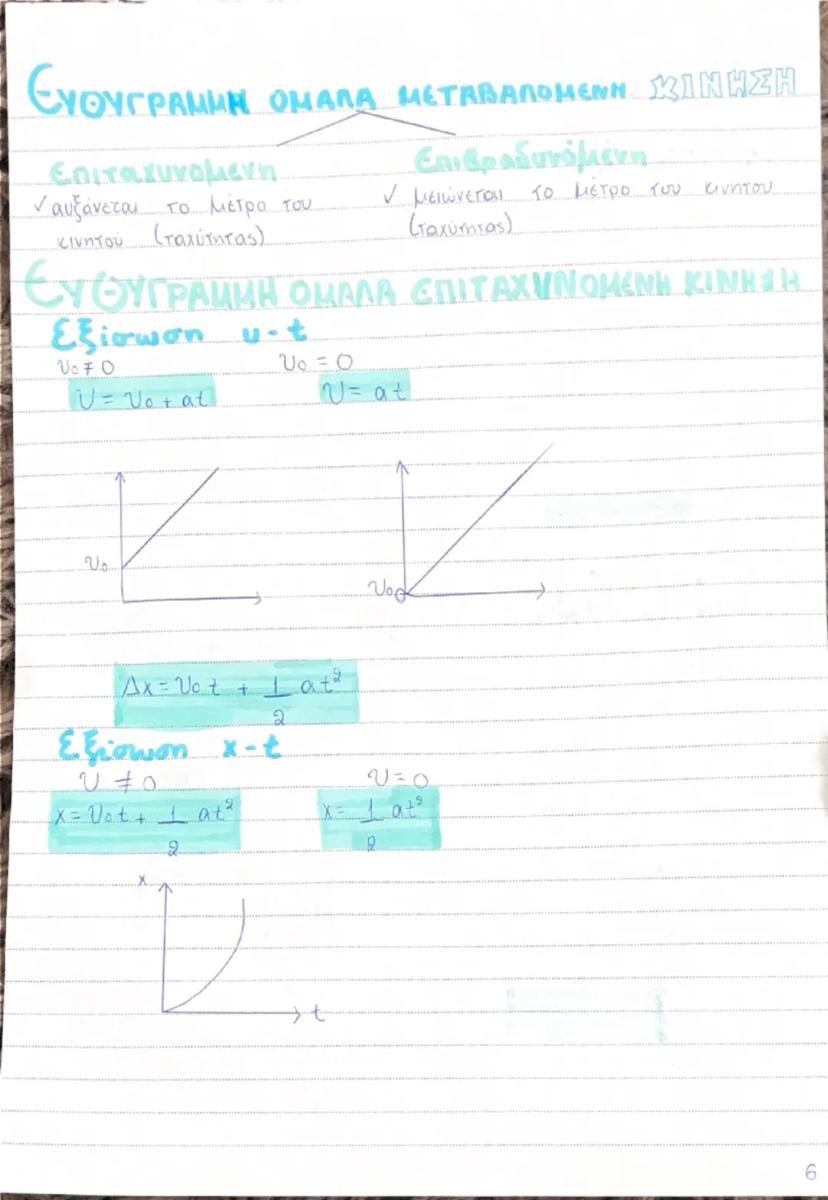 ΕΥΘΥΓΡΑΜΜΗ ΟΜΑΛΑ ΜΕΤΑΒΑΛΟΜΕΝΗ ΚΙΝΗΣΗ
Επιταχυνομενη
✓ αυξάνεται το μέτρο του
κινητού (ταχύτητας)
Επιβραδυνόμενη
✓ μειώνεται το μέτρο του κινητου
(ταχύτητας)
ΕΥΘΥΓΡΑΜΜΗ ΟΜΑΛΑ ΕΠΙΤΑΧΥΝΟΜΕΝΗ ΚΙΝΗΣΗ
Εξίσωση υ-t
υ₀ ≠ 0 υ₀ = 0
υ = υ₀ + at υ = at
υ₀ υ₀
Δx = υ₀t + 1/2 at²
Εξίσωση x-t
υ ≠ 0 υ = 0
x = υ₀t + 1/2 at² x = 1/2 at²
x
t
6